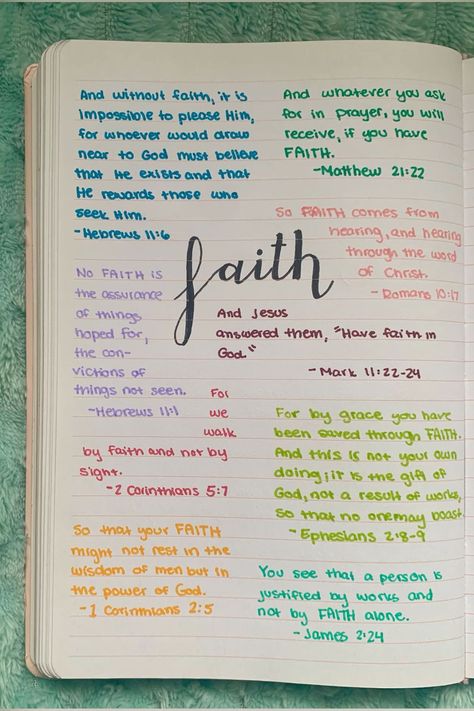 And without faith, it is
impossible to please Him,
for whoever would draw
near to God must believe
that He exists and that
He rewards those who
seek Him.
-Hebrews 11:6
And whatever you ask
for in prayer, you will
receive, if you have
FAITH.
-Matthew 21:22
So FAITH comes from
hearing, and hearing
through the word
of Christ.
-Romans 10:17
faith
No FAITH is
the assurance
of things
hoped for,
the con-
victions of
things not seen.
-Hebrews 11:1
And Jesus
answered them, "Have faith in
God."
-Mark 11:22-24
For
we
walk
by faith and not by
sight.
-2 Corinthians 5:7
For by grace you have
been saved through FAITH.
And this is not your own
doing; it is the gift of
God, not a result of works,
so that no one may boast.
-Ephesians 2:8-9
So that your FAITH
might not rest in the
wisdom of men but in
the power of God.
-1 Corinmhians 2:5
You see that a person is
justified by works and
not by FAITH alone.
-James 2:24